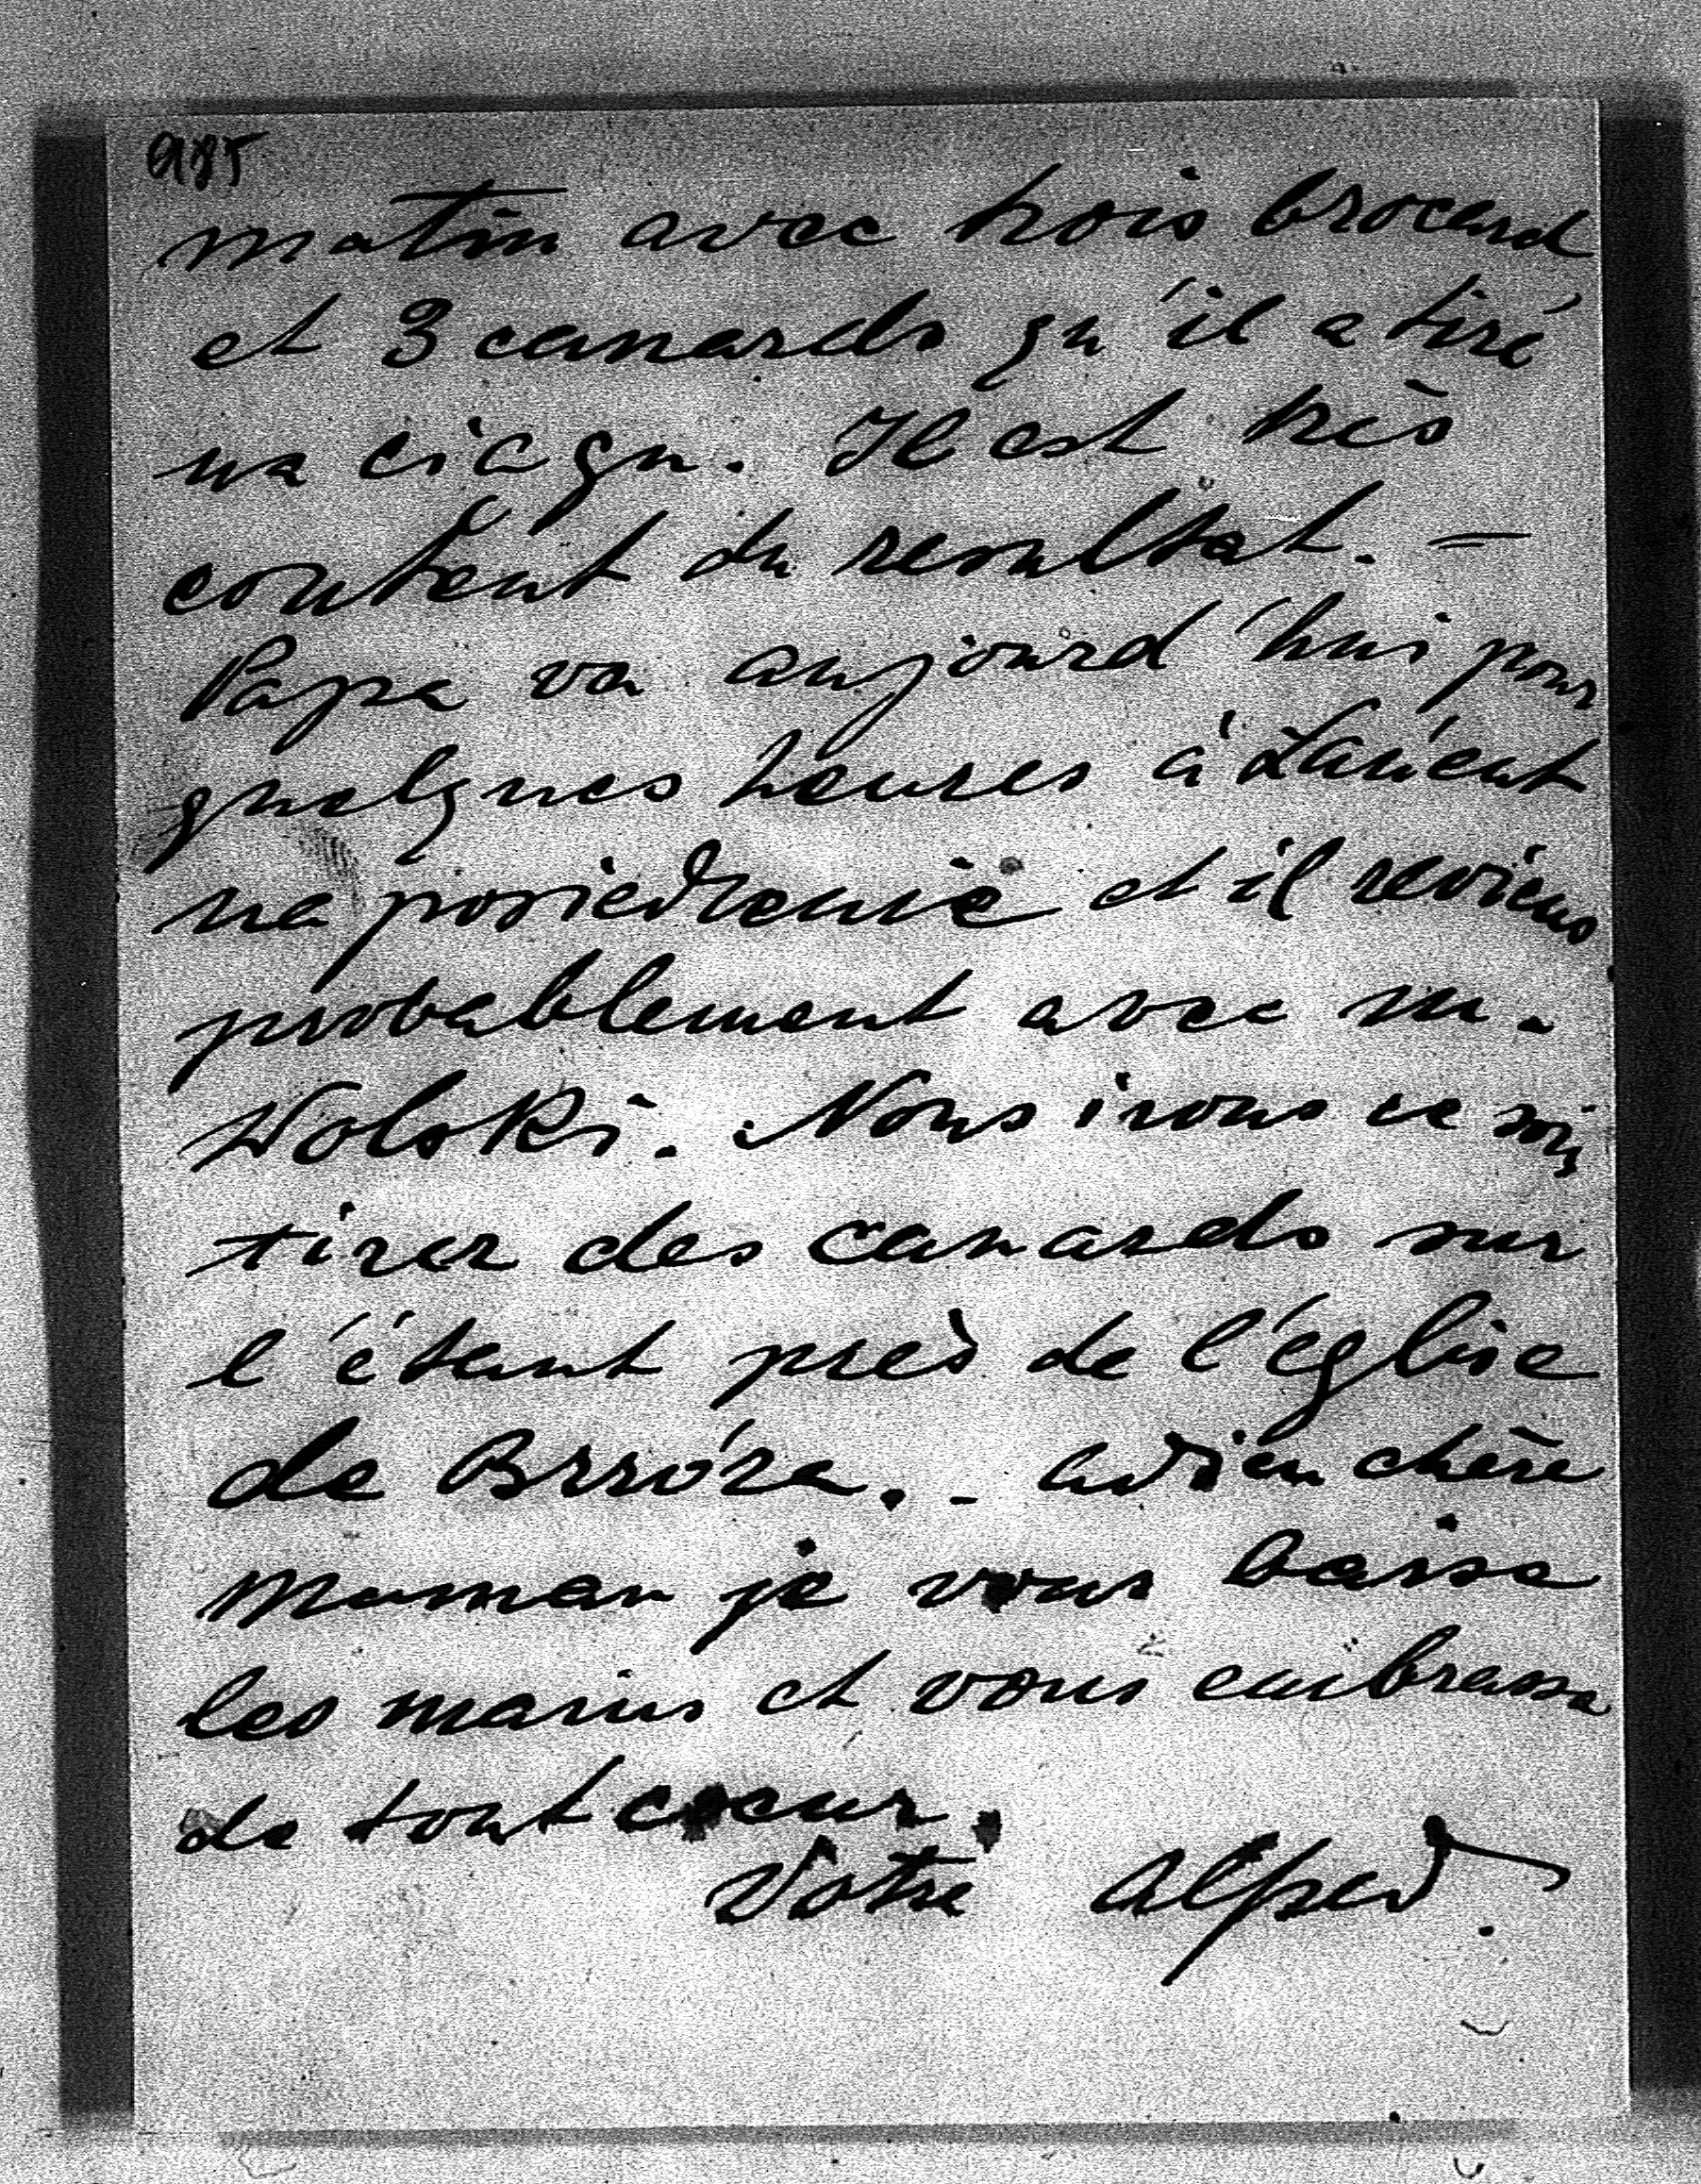 985
matin avec trois brocard
et 3 canards qu'il a tiré
na ciągu. Il est très
content du resultat. =
Papa va aujourd'hui pour
quelques heures à Łańcut
na posiedzenie et il reviens
probablement avec M.
Wolski. Nous irons ce soir
tirer des canards sur
l'étant près de l'église
de Brzóza. - Adieu chère
Maman je vous baise
les mains et vous embrasse
de tout coeur.
Votre Alfred.